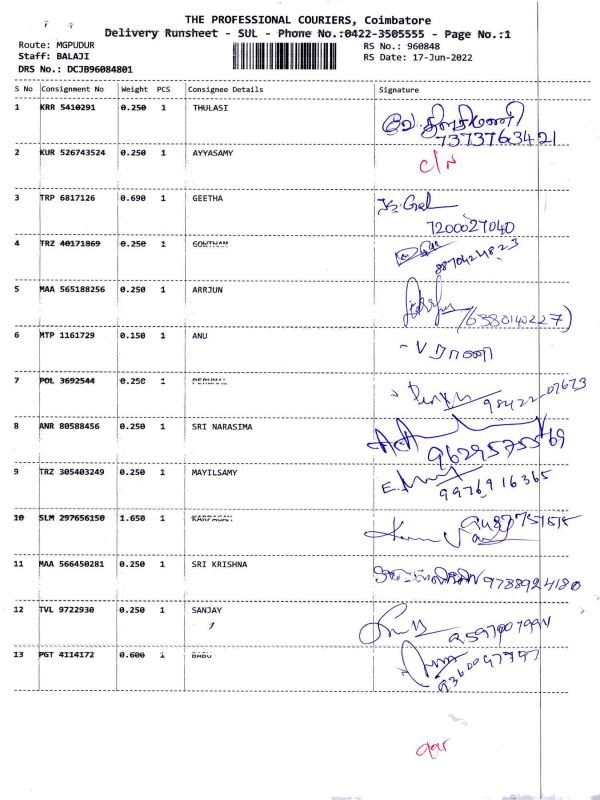 THE PROFESSIONAL COURIERS, Coimbatore
Delivery Runsheet - SUL - Phone No.:0422-3505555 - Page No.:1
Route: MGPUDUR RS No.: 960848
Staff: BALAJI RS Date: 17-Jun-2022
DRS No.: DCJB96084801
S No Consignment No Weight PCS Consignee Details Signature
1 KRR 5410291 0.250 1 THULASI
7373763421
2 KUR 526743524 0.250 1 AYYASAMY
C/N
3 TRP 6817126 0.690 1 GEETHA
7200027040
4 TRZ 40171869 0.250 1 GOWTHAM
8870424823
5 MAA 565188256 0.250 1 ARRJUN
6380140227)
6 MTP 1161729 0.150 1 ANU
- V ராணி
7 POL 3692544 0.250 1 PERUMAL
98422-07673
8 ANR 80588456 0.250 1 SRI NARASIMA
9629575569
9 TRZ 305403249 0.250 1 MAYILSAMY
9976916365
10 SLM 297656150 1.650 1 KARPAGAM
11 MAA 566450281 0.250 1 SRI KRISHNA
9788924180
12 TVL 9722930 0.250 1 SANJAY
13 PGT 4114172 0.600 1 BABU